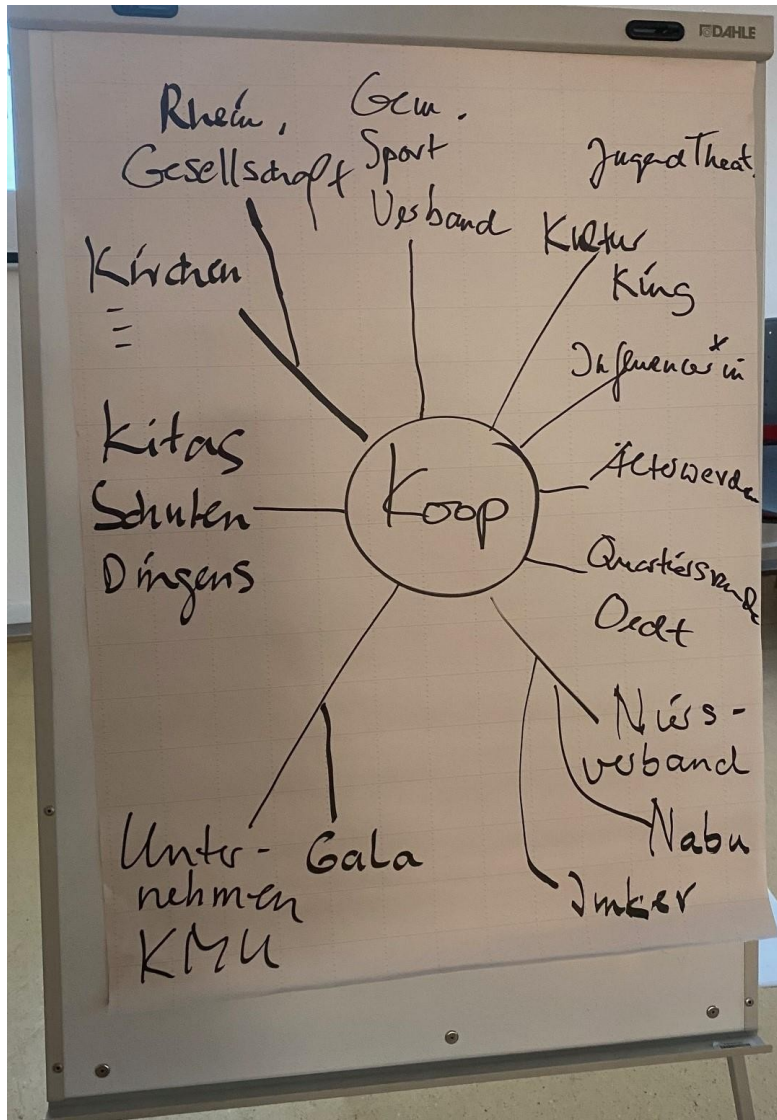 DAHLE
Rhein.
Gesellschaft
Gem.
Sport
Verband
JugendTheat.
Kultur
King
Influencer*in
Kirchen
Kitas
Schulen
Dingens
Koop
Älterwerden
Quartiersrunde
Oedt
Niers-
verband
Nabu
Imker
Unter-
nehmen
KMU
GaLa